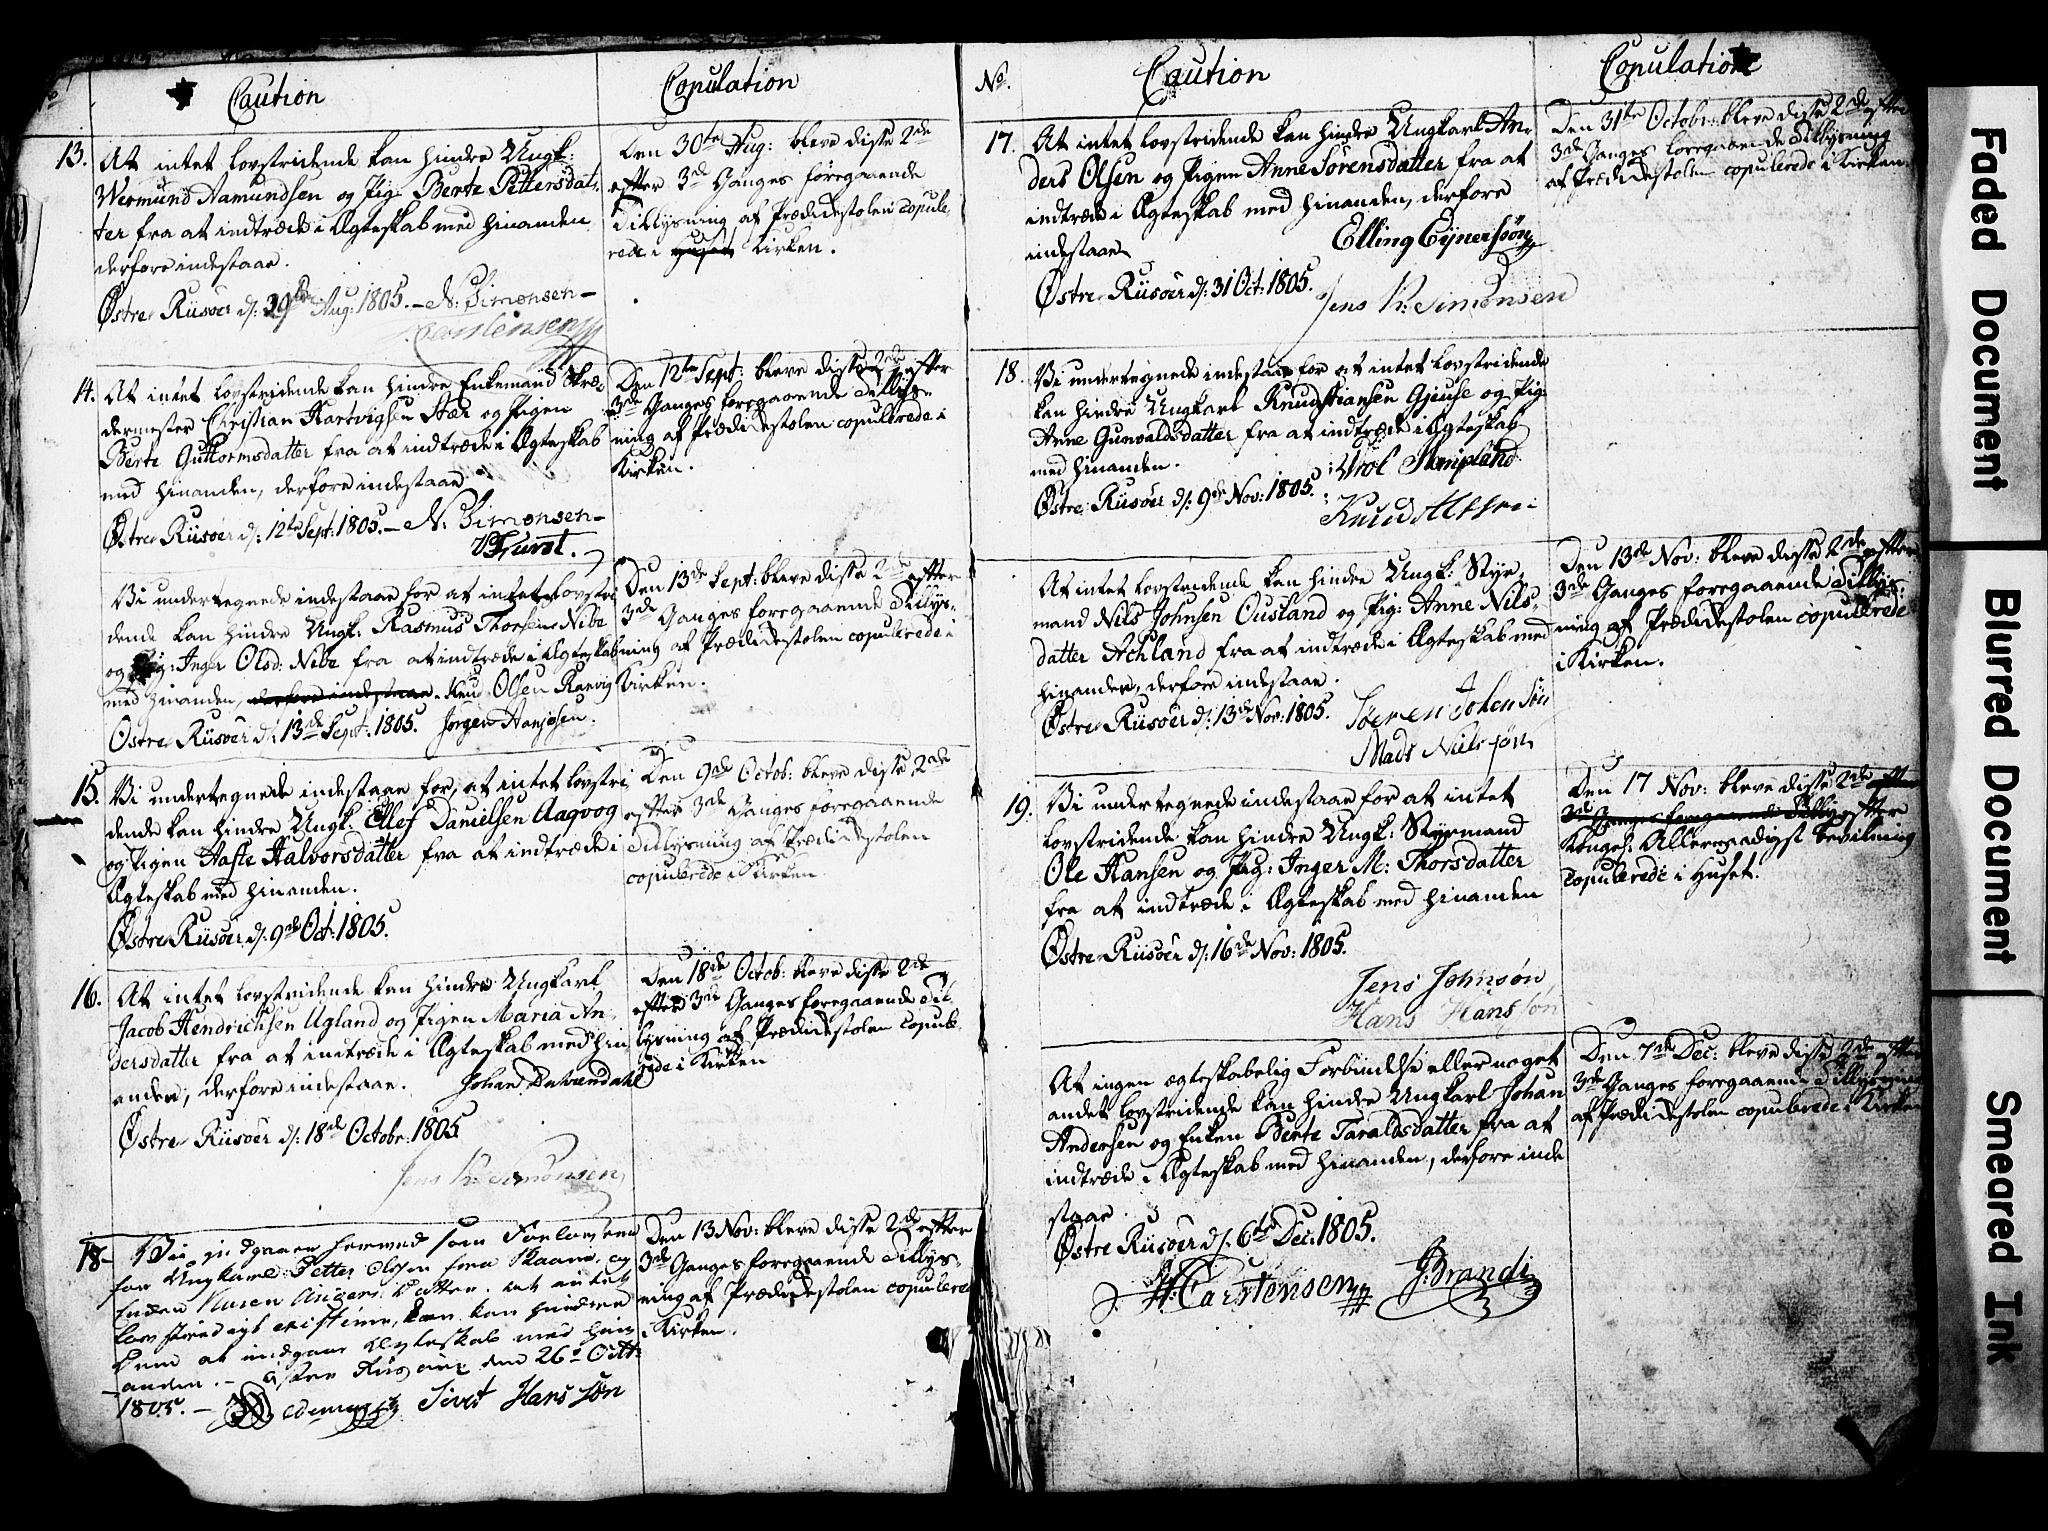 Caution
Copulation
13.
At intet lovstridende kan hindre Ungk:
Wermund Aamundsen og Pig: Berte Pettersdat-
ter fra at indtræde i Ægteskab med hinanden
derfore indestaae.
Østre Riisøer d: 29 Aug: 1805. – N: Simonsen –
Den 30te Aug: bleve disse 2de
efter 3de Ganges foregaaende
Tillysning af Prædikestolen copule
rede i Huset Kirken.
14.
At intet lovstridende kan hindre Enkemand Skræ-
dermester Christian Hartvigsen Aar og Pigen
Berte Guttormsdatter fra at indtræde i Ægteskab
med hinanden, derfore indestaae
Østre Riisøer d: 12te Sept: 1805. – N: Simonsen –
Den 12te Sept: bleve disse 2de efter
3de Ganges foregaaende Tillys-
ning af Prædikestolen copulerede i
Kirken.
Vi undertegnede indestaae for at intet lovstri
dende kan hindre Ungk: Rasmus Thorsen Nibe
og Pig: Inger Olsd: Nibe fra at indtræde i Ægteskab
med hinanden, derfore indestaae. Knud Olsen Ranvig
Østre Riisøer d: 13de Sept: 1805. Jørgen Aanjosen.
Den 13de Sept: bleve disse 2de efter
3de Ganges foregaaende Tillys-
ning af Prædikestolen copulerede i
Kirken.
15.
Vi undertegnede indestaae for, at intet lovstri
dende kan hindre Ungk: Ellef Danielsen Aaqvog
og Pigen Aaste Halvorsdatter fra at indtræde i
Ægteskab med hinanden.
Østre Riisøer d: 9de Oct: 1805.
Den 9de Octob: bleve disse 2de
efter 3de Ganges foregaaende
Tillysning af Prædikestolen
copulerede i Kirken.
16.
At intet lovstridende kan hindre Ungkarl
Jacob Hendrichsen Ugland og Pigen Maria An-
dersdatter fra at indtræde i Ægteskab med hin
anden, derfore indestaae. Johan Dahlendahl
Østre Riisøer d: 18de Octobr: 1805.
Jens Kr: Simonsen
Den 18de Octob: bleve disse 2de
efter 3de Ganges foregaaende Til-
lysning af Prædikestolen copule
rede i Kirken
18-
Vii indgaaer herved som Forlovere
for Ungkarl Petter Olsen fra Skaane, og
Enken Karen Datter. at intet
kan hindre
dem at indgaae Ægteskab med hin
anden. – Øster Riisøer den 26de Octb:
1805. – Sivert Hans Søn
Den 13 Nov: bleve disse 2de efter
3de Ganges foregaaende Tillys-
ning af Prædikestolen copulerede
i Kirken.
No.
Caution
Copulation
17.
At intet lovstridende kan hindre Ungkarl An-
ders Olsen og Pigen Anne Sørensdatter fra at
indtræde i Ægteskab med hinanden, derfore
indestaae Elling Eijnersøn
Østre Riisøer d: 31 Oct: 1805.
Jens Kr: Simonsen
Den 31te Octobr: bleve disse 2de efter
3de Ganges foregaaende Tillysning
af Prædikestolen copulerede i Kirken.
18.
Vi undertegnede indestaae for at intet lovstridende
kan hindre Ungkarl Knud Stiansen Gjeuse og Pig:
Anne Gunvaldsdatter fra at indtræde i Ægteskab
med hinanden.
Østre Riisøer d: 9de Nov: 1805.
At intet lovstridende kan hindre Ungk: Styr-
mand Nils Johnsen Ousland og Pig: Anne Nils-
datter Achland fra at indtræde i Ægteskab med
hinanden, derfore indestaae.
Østre Riisøer d: 13de Nov: 1805. Søeren Johensøn
Mads Nielsøn
Den 13de Nov: bleve disse 2de efter
3de Ganges foregaaende Tillys-
ning af Prædikestolen copulerede
i Kirken.
19.
Vi undertegnede indestaae for at intet
lovstridende kan hindre Ungk: Styrmand
Ole Hansen og Pig: Inger M: Thorsdatter
fra at indtræde i Ægteskab med hinanden
Østre Riisøer d: 16de Nov: 1805.
Jens Johnsøn
Hans Hanssøn
Den 17 Nov: bleve disse 2de efter
3de Ganges foregaaende Tillys efter
Kongel: Allernaadigst bevilning
copulerede i Huset.
At ingen ægteskabelig Forbindelse eller noget
andet lovstridende kan hindre Ungkarl Johan
Andersen og Enken Berte Taraldsdatter fra at
indtræde i Ægteskab med hinanden, derfore inde
staae.
Østre Riisøer d: 6te Dec: 1805.
H: Carstensen J: Brandi
Den 7de Dec: bleve disse 2de efter
3de Ganges foregaaende Tillysning
af Prædikestolen copulerede i Kirken
Faded Document
Blurred Document
Smeared Ink